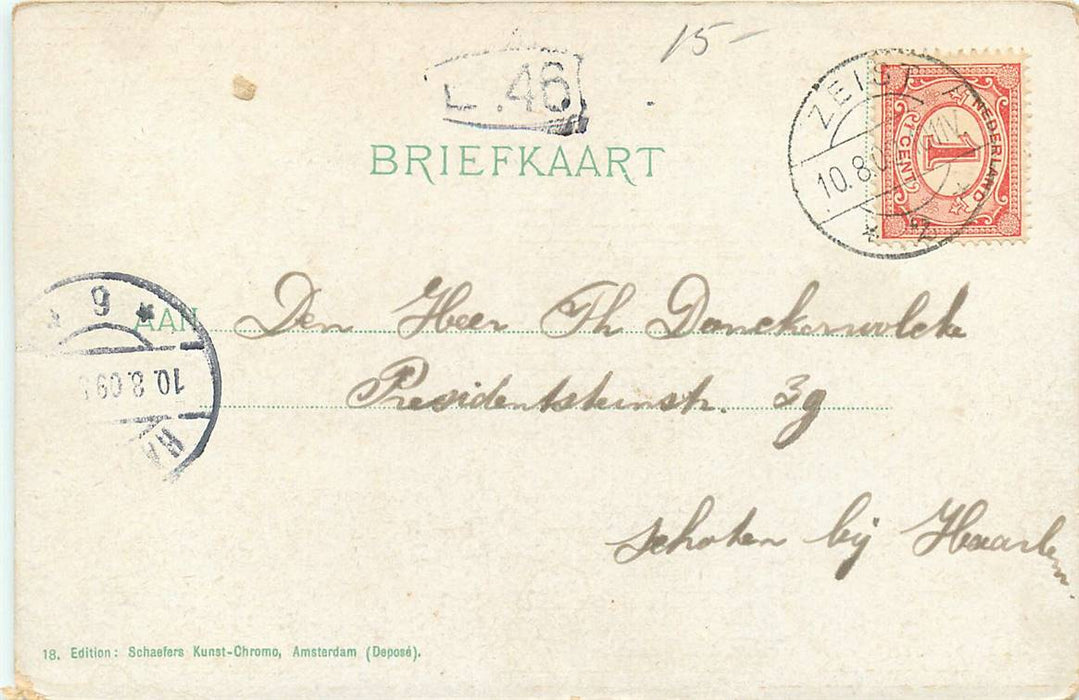 15-
L .46
BRIEFKAART
ZEIST
10.8.0
NEDERLAND
1
CENT
6
10.8.09
HA
AAN Den Heer Th Donckerwolcke
Presidentsteinstr. 39
schoten bij Haarlem
18. Edition: Schaefers Kunst-Chromo, Amsterdam (Deposé).